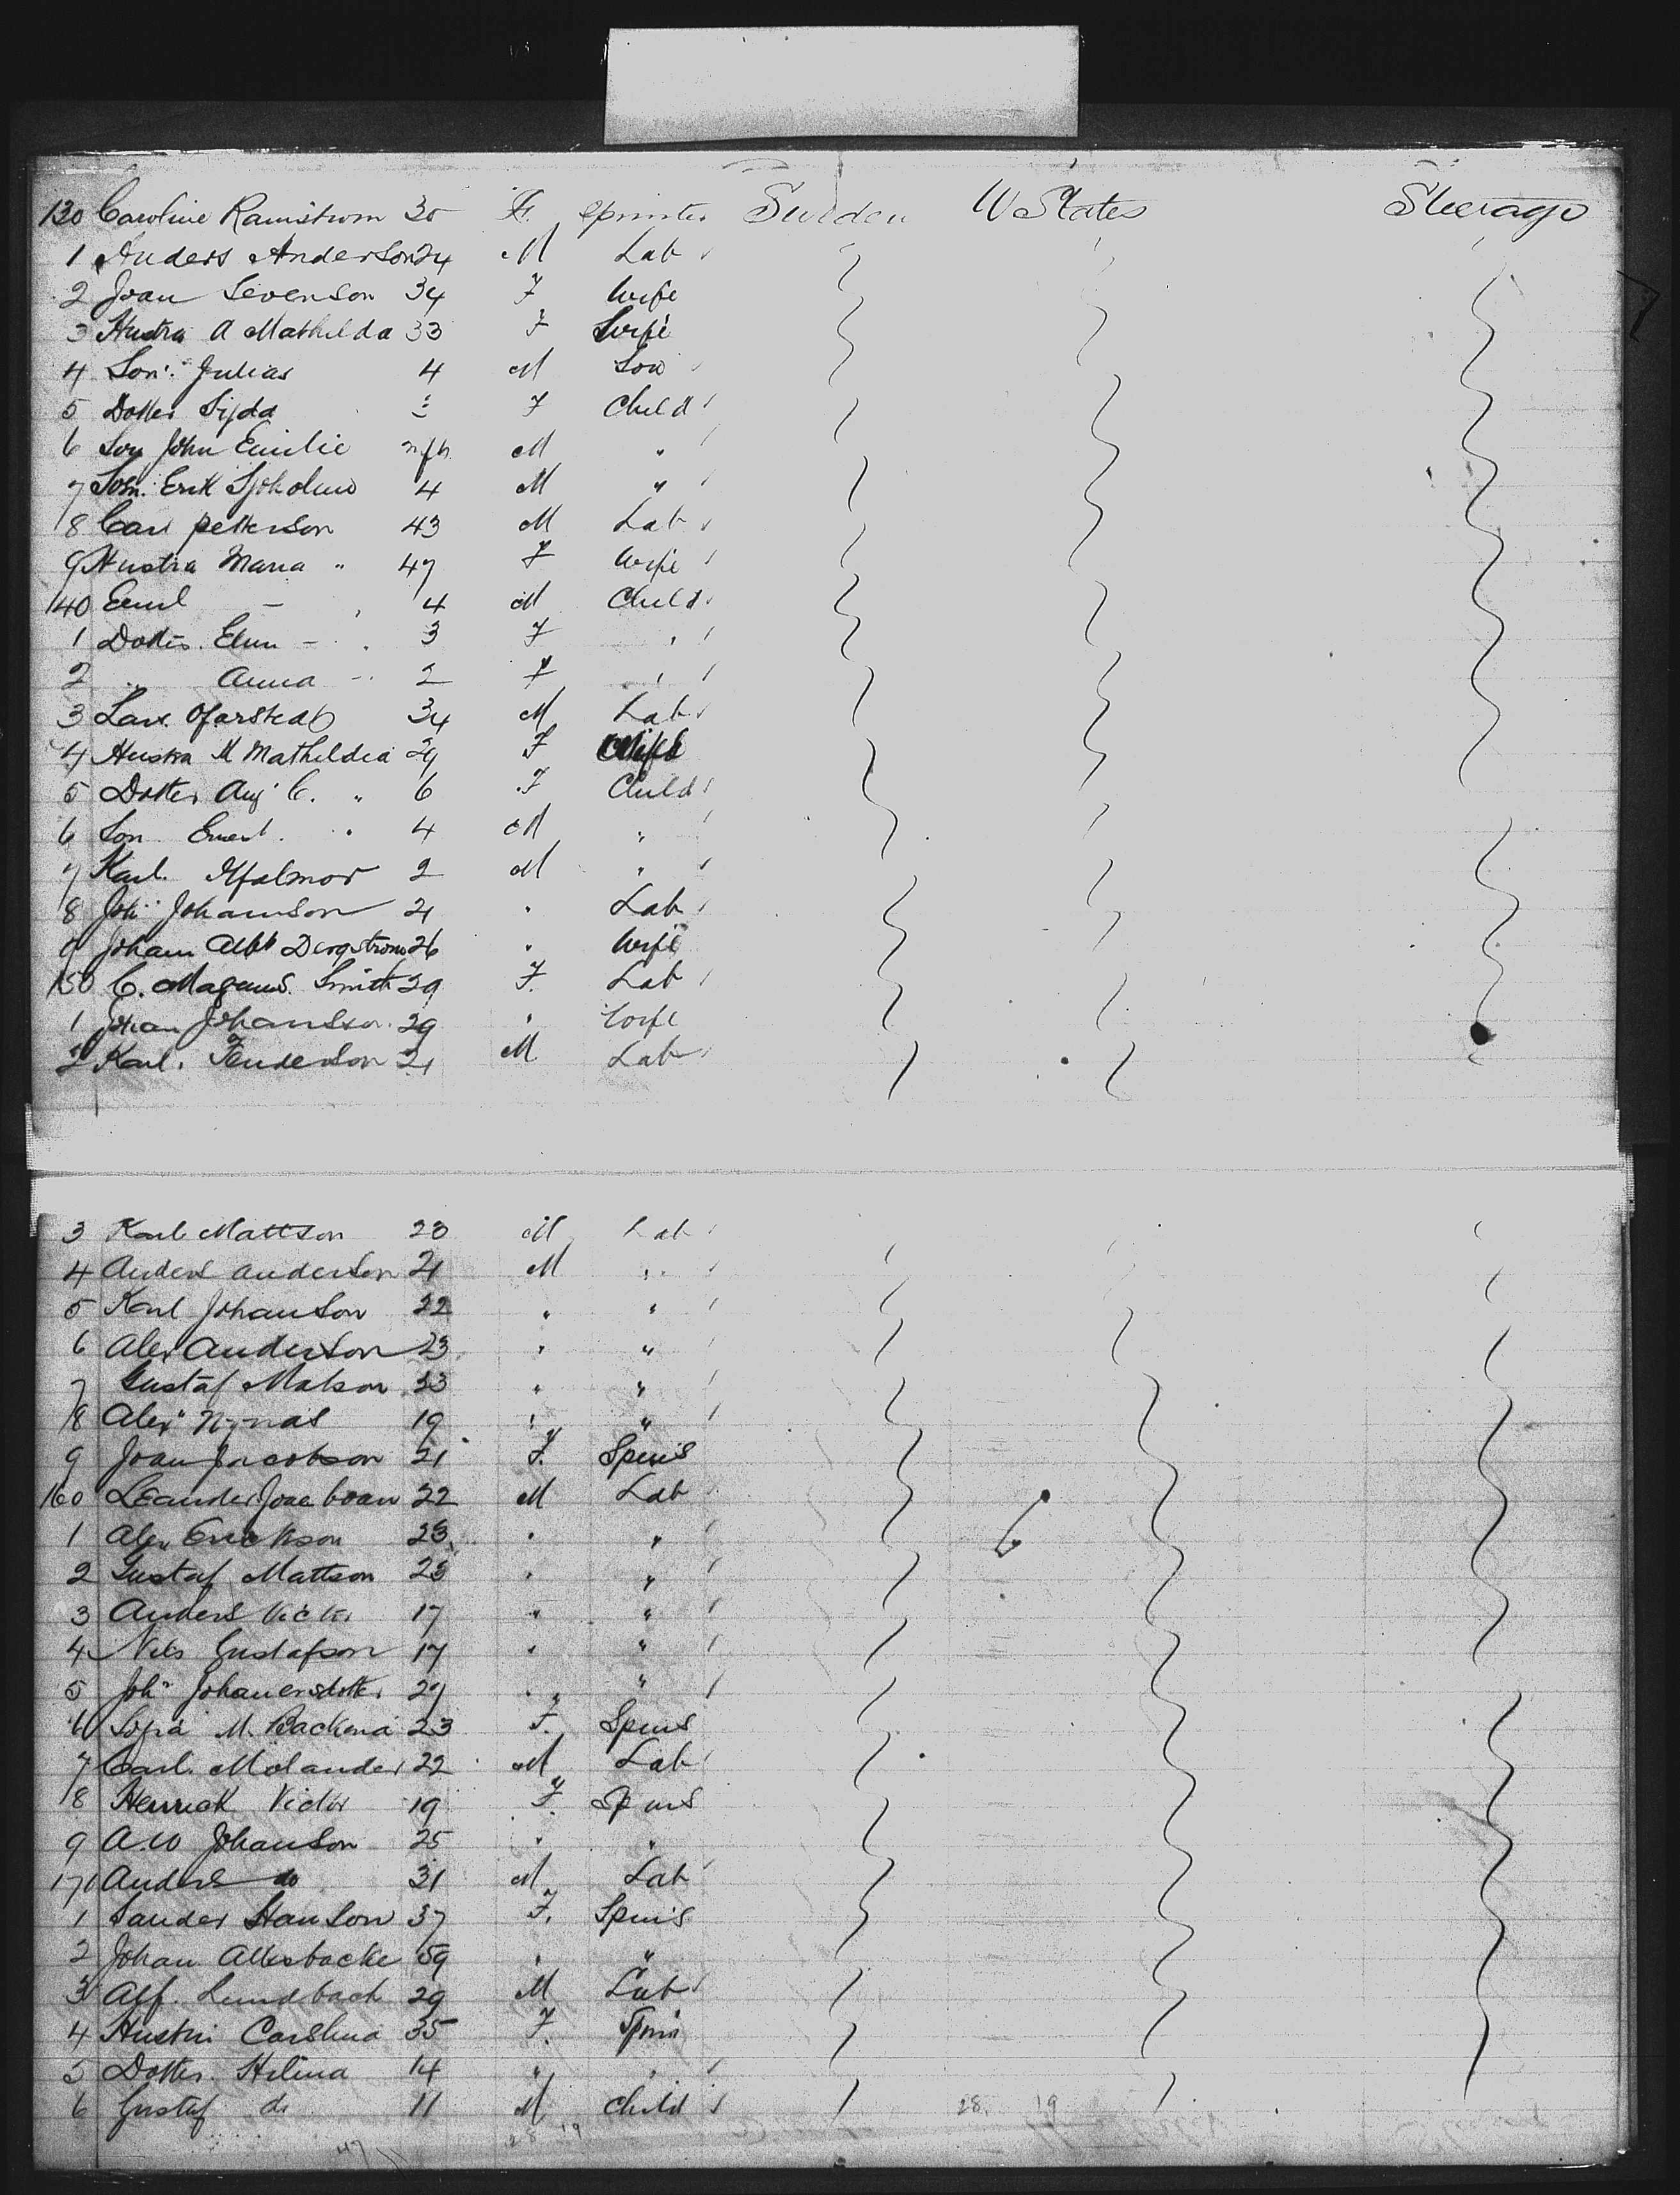 130 Caroline Ramstrom 30 F. Spinster Sweden U States Steerage
1 Anders Anderson 24 M Lab
2 Joan Sevenson 34 F Wife
3 Hustra A Mathilda 33 F Wife
4 Son. Julias 4 M Son
5 Dotter Sijda 3 F Child
6 Son John Emilie M "
7 Son. Erik Sjoholm 4 M "
8 Carl petterson 43 M Lab
9 Hustra Maria " 47 F Wife
140 Emil - 4 M Child
1 Dotter. Elin - 3 F "
2 " Anna - 2 F "
3 Lars. Ofarstedt 34 M Lab
4 Hustra M Mathildia 29 F Wife
5 Dotter Aug C. " 6 F Child
6 Son Ernest. " 4 M "
7 Karl. Hjalmar 2 M "
8 Joh" Johannson 21 " Lab
9 Johann Albt Bergstrom 26 " Wife
150 C. Magnus. Smith 29 F. Lab
1 Johan Johansson. 29 " Wife
2 Karl. Fenderson 21 M Lab
3 Karl Mattson 20 M Lab
4 Anders anderson 21 M "
5 Karl Johanson 22 " "
6 Alex Anderson 23 " "
7 Gustaf Matson 23 " "
8 Alex" Nynas 19 " "
9 Joan Jacobson 21 F. Spins
160 Leander Jacobson 22 M Lab
1 Alex Erickson 23 " "
2 Gustaf Mattson 23 " "
3 Anders Victor 17 " "
4 Nils Gustafson 17 " "
5 Joh" Johanersdotter 27 " "
6 Sofia M. Backena 23 F. Spins
7 Carl. Molander 22 M Lab
8 Henrick Victor 19 F. Spins
9 A.W Johanson 25 " "
171 Anders do 31 M Lab
1 Sander Hanson 37 F. Spins
2 Johan Allersbacke 59 " "
3 Alf. Lundback 29 M Lab
4 Hustru Carolina 35 F. Spins
5 Dotter. Helina 14 " "
6 Gustaf do 11 M Child 28. 19
47 28 19